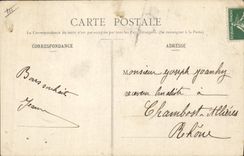 CARTE POSTALE
La Correspondance au recto n'est pas acceptée par tous les Pays Étrangers. (Se renseigner à la Poste).
CORRESPONDANCE
ADRESSE
Bons souhaits
Jeanne
Monsieur Joseph
Chambost-Allières
Rhône